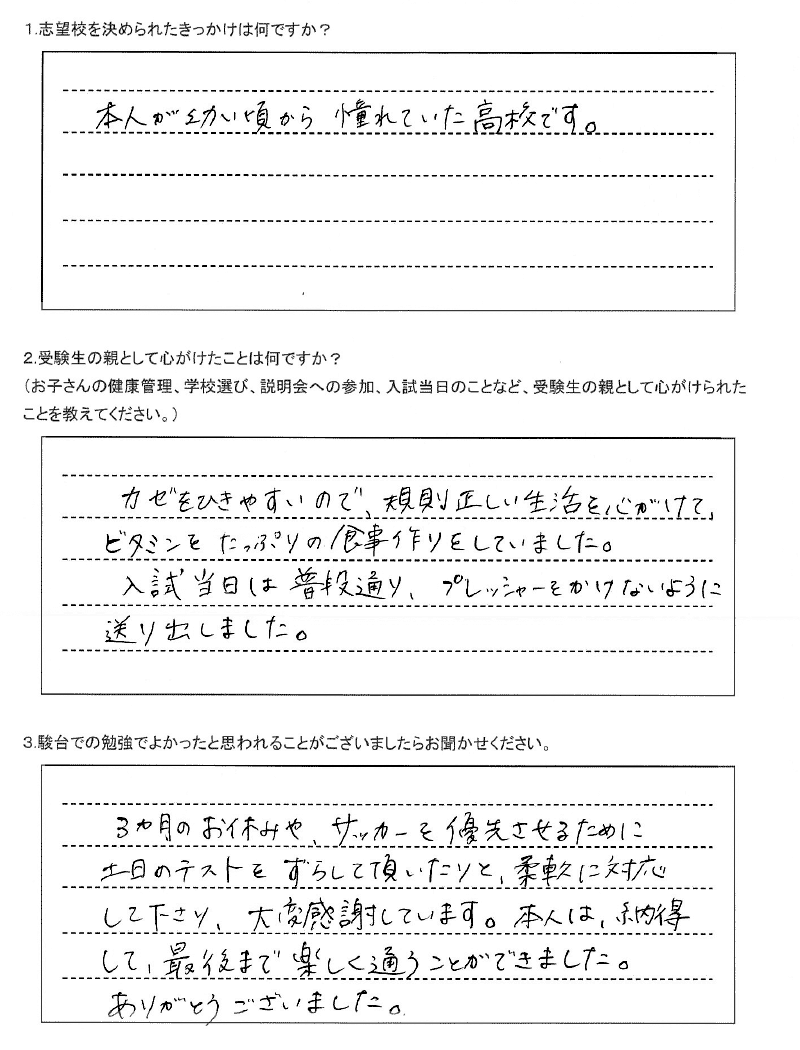 1.志望校を決められたきっかけは何ですか？
本人が幼い頃から憧れていた高校です。
2.受験生の親として心がけたことは何ですか？
（お子さんの健康管理、学校選び、説明会への参加、入試当日のことなど、受験生の親として心がけられた
ことを教えてください。）
カゼをひきやすいので、規則正しい生活を心がけて、
ビタミンをたっぷりの食事作りをしていました。
入試当日は普段通り、プレッシャーをかけないように
送り出しました。
3.駿台での勉強でよかったと思われることがございましたらお聞かせください。
3カ月のお休みや、サッカーを優先させるために
土日のテストをずらして頂いたりと、柔軟に対応
して下さり、大変感謝しています。本人は、納得
して、最後まで楽しく通うことができました。
ありがとうございました。